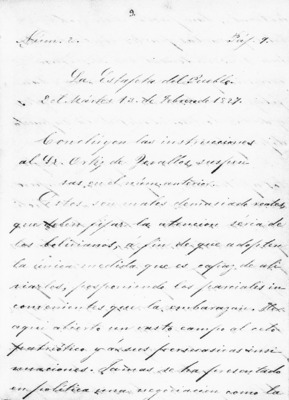 3.
Núm. 2. Páj. 9.
La Estafeta del Pueblo
del Mártes 13 de Febrero de 1827.
Concluyen las instrucciones
al Sr. Ortiz de Zevallos, suspen-
sas, en el núm. anterior.
Estos son males demasiado
que deben fijar la atencion séria de
los bolivianos, a fin de que adopten
la única medida que es capaz de ali-
viarlos, posponiendo los parciales in-
convenientes que la embarazan. Hé
aqui abierto un vasto campo al celo
patriótico y á sus persuasivas insi-
nuaciones. Jamas se ha presentado
en política una negociacion como la